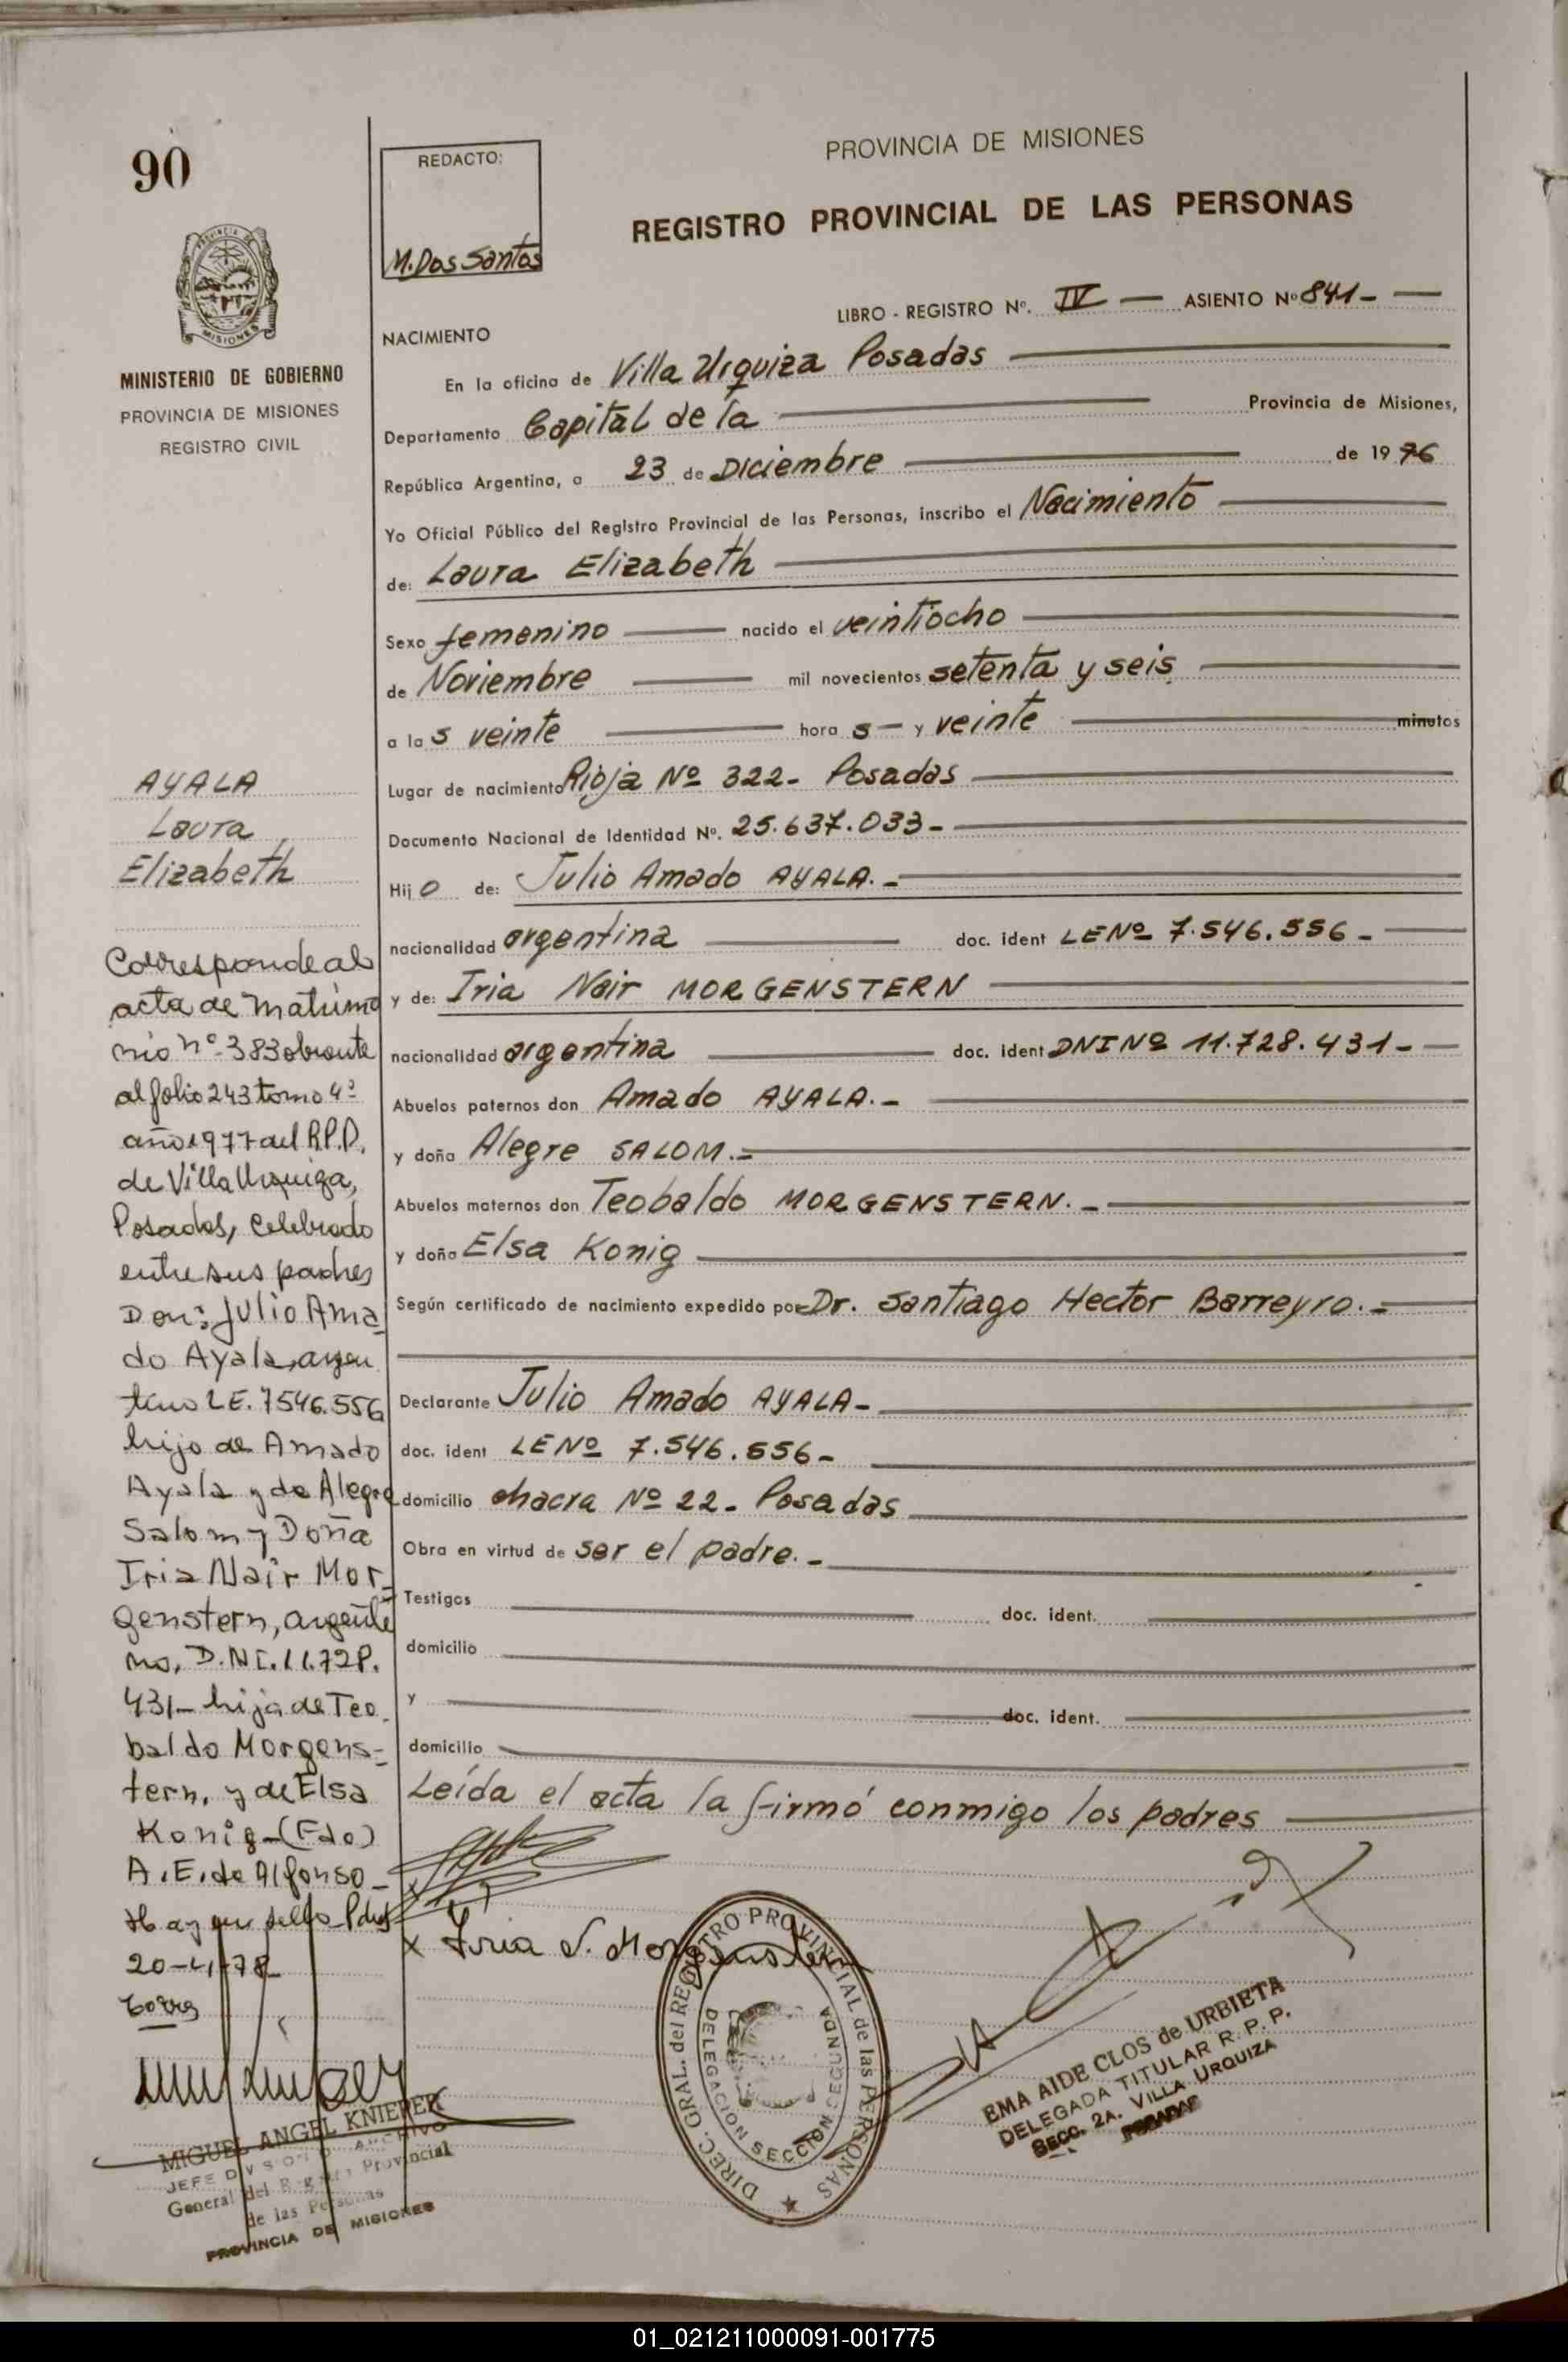 90
REDACTO:
M. Dos Santos
PROVINCIA DE MISIONES
REGISTRO PROVINCIAL DE LAS PERSONAS
PROVINCIA DE
MISIONES
MINISTERIO DE GOBIERNO
PROVINCIA DE MISIONES
REGISTRO CIVIL
LIBRO - REGISTRO Nº. IV — ASIENTO Nº 841 -
NACIMIENTO
En la oficina de Villa Urquiza Posadas
Departamento Capital de la Provincia de Misiones,
República Argentina, a 23 de Diciembre de 1976
Yo Oficial Público del Registro Provincial de las Personas, inscribo el Nacimiento
de: Laura Elizabeth
Sexo femenino nacido el veintiocho
de Noviembre mil novecientos setenta y seis
a las veinte horas — y veinte minutos
Lugar de nacimiento Rioja Nº 322 - Posadas
Documento Nacional de Identidad Nº. 25.637.033 -
Hijo de: Julio Amado AYALA. -
nacionalidad argentina doc. ident LE Nº 7.546.556 -
y de: Iria Nair MORGENSTERN
nacionalidad argentina doc. ident DNI Nº 11.728.431 -
Abuelos paternos don Amado AYALA. -
y doña Alegre SALOM. -
Abuelos maternos don Teobaldo MORGENSTERN. -
y doña Elsa Konig
Según certificado de nacimiento expedido por Dr. Santiago Hector Barreyro. -
Declarante Julio Amado AYALA -
doc. ident LE Nº 7.546.556 -
domicilio chacra Nº 22 - Posadas
Obra en virtud de ser el padre. -
Testigos doc. ident.
domicilio
y doc. ident.
domicilio
Leída el acta la firmó conmigo los padres
x Iria N. Morgenstern
AYALA
Laura
Elizabeth
Corresponde al
acta de matrimo
nio nº 383 obrante
al folio 243 tomo 4º
año 1977 del R.P.P.
de Villa Urquiza,
Posadas, celebrado
entre sus padres
Don: Julio Ama
do Ayala, argen
tino L E. 7546.556
hijo de Amado
Ayala y de Alegre
Salom y Doña
Iria Nair Mor-
genstern, argenti
na, D.NI. 11.728.
431- hija de Teo
baldo Morgens-
tern, y de Elsa
Konig - (Fdo)
A. E. de Alfonso -
Hay un sello Pdas
20-4-78
MIGUEL ANGEL KNIERER
JEFE DIVISION ARCHIVO
General del Registro Provincial
de las Personas
PROVINCIA DE MISIONES
DIREC. GRAL. del REGISTRO PROVINCIAL de las PERSONAS
DELEGACION SECCION SEGUNDA
EMA AIDE CLOS de URBIETA
DELEGADA TITULAR R. P. P.
SECC. 2A. VILLA URQUIZA
POSADAS
01_021211000091-001775